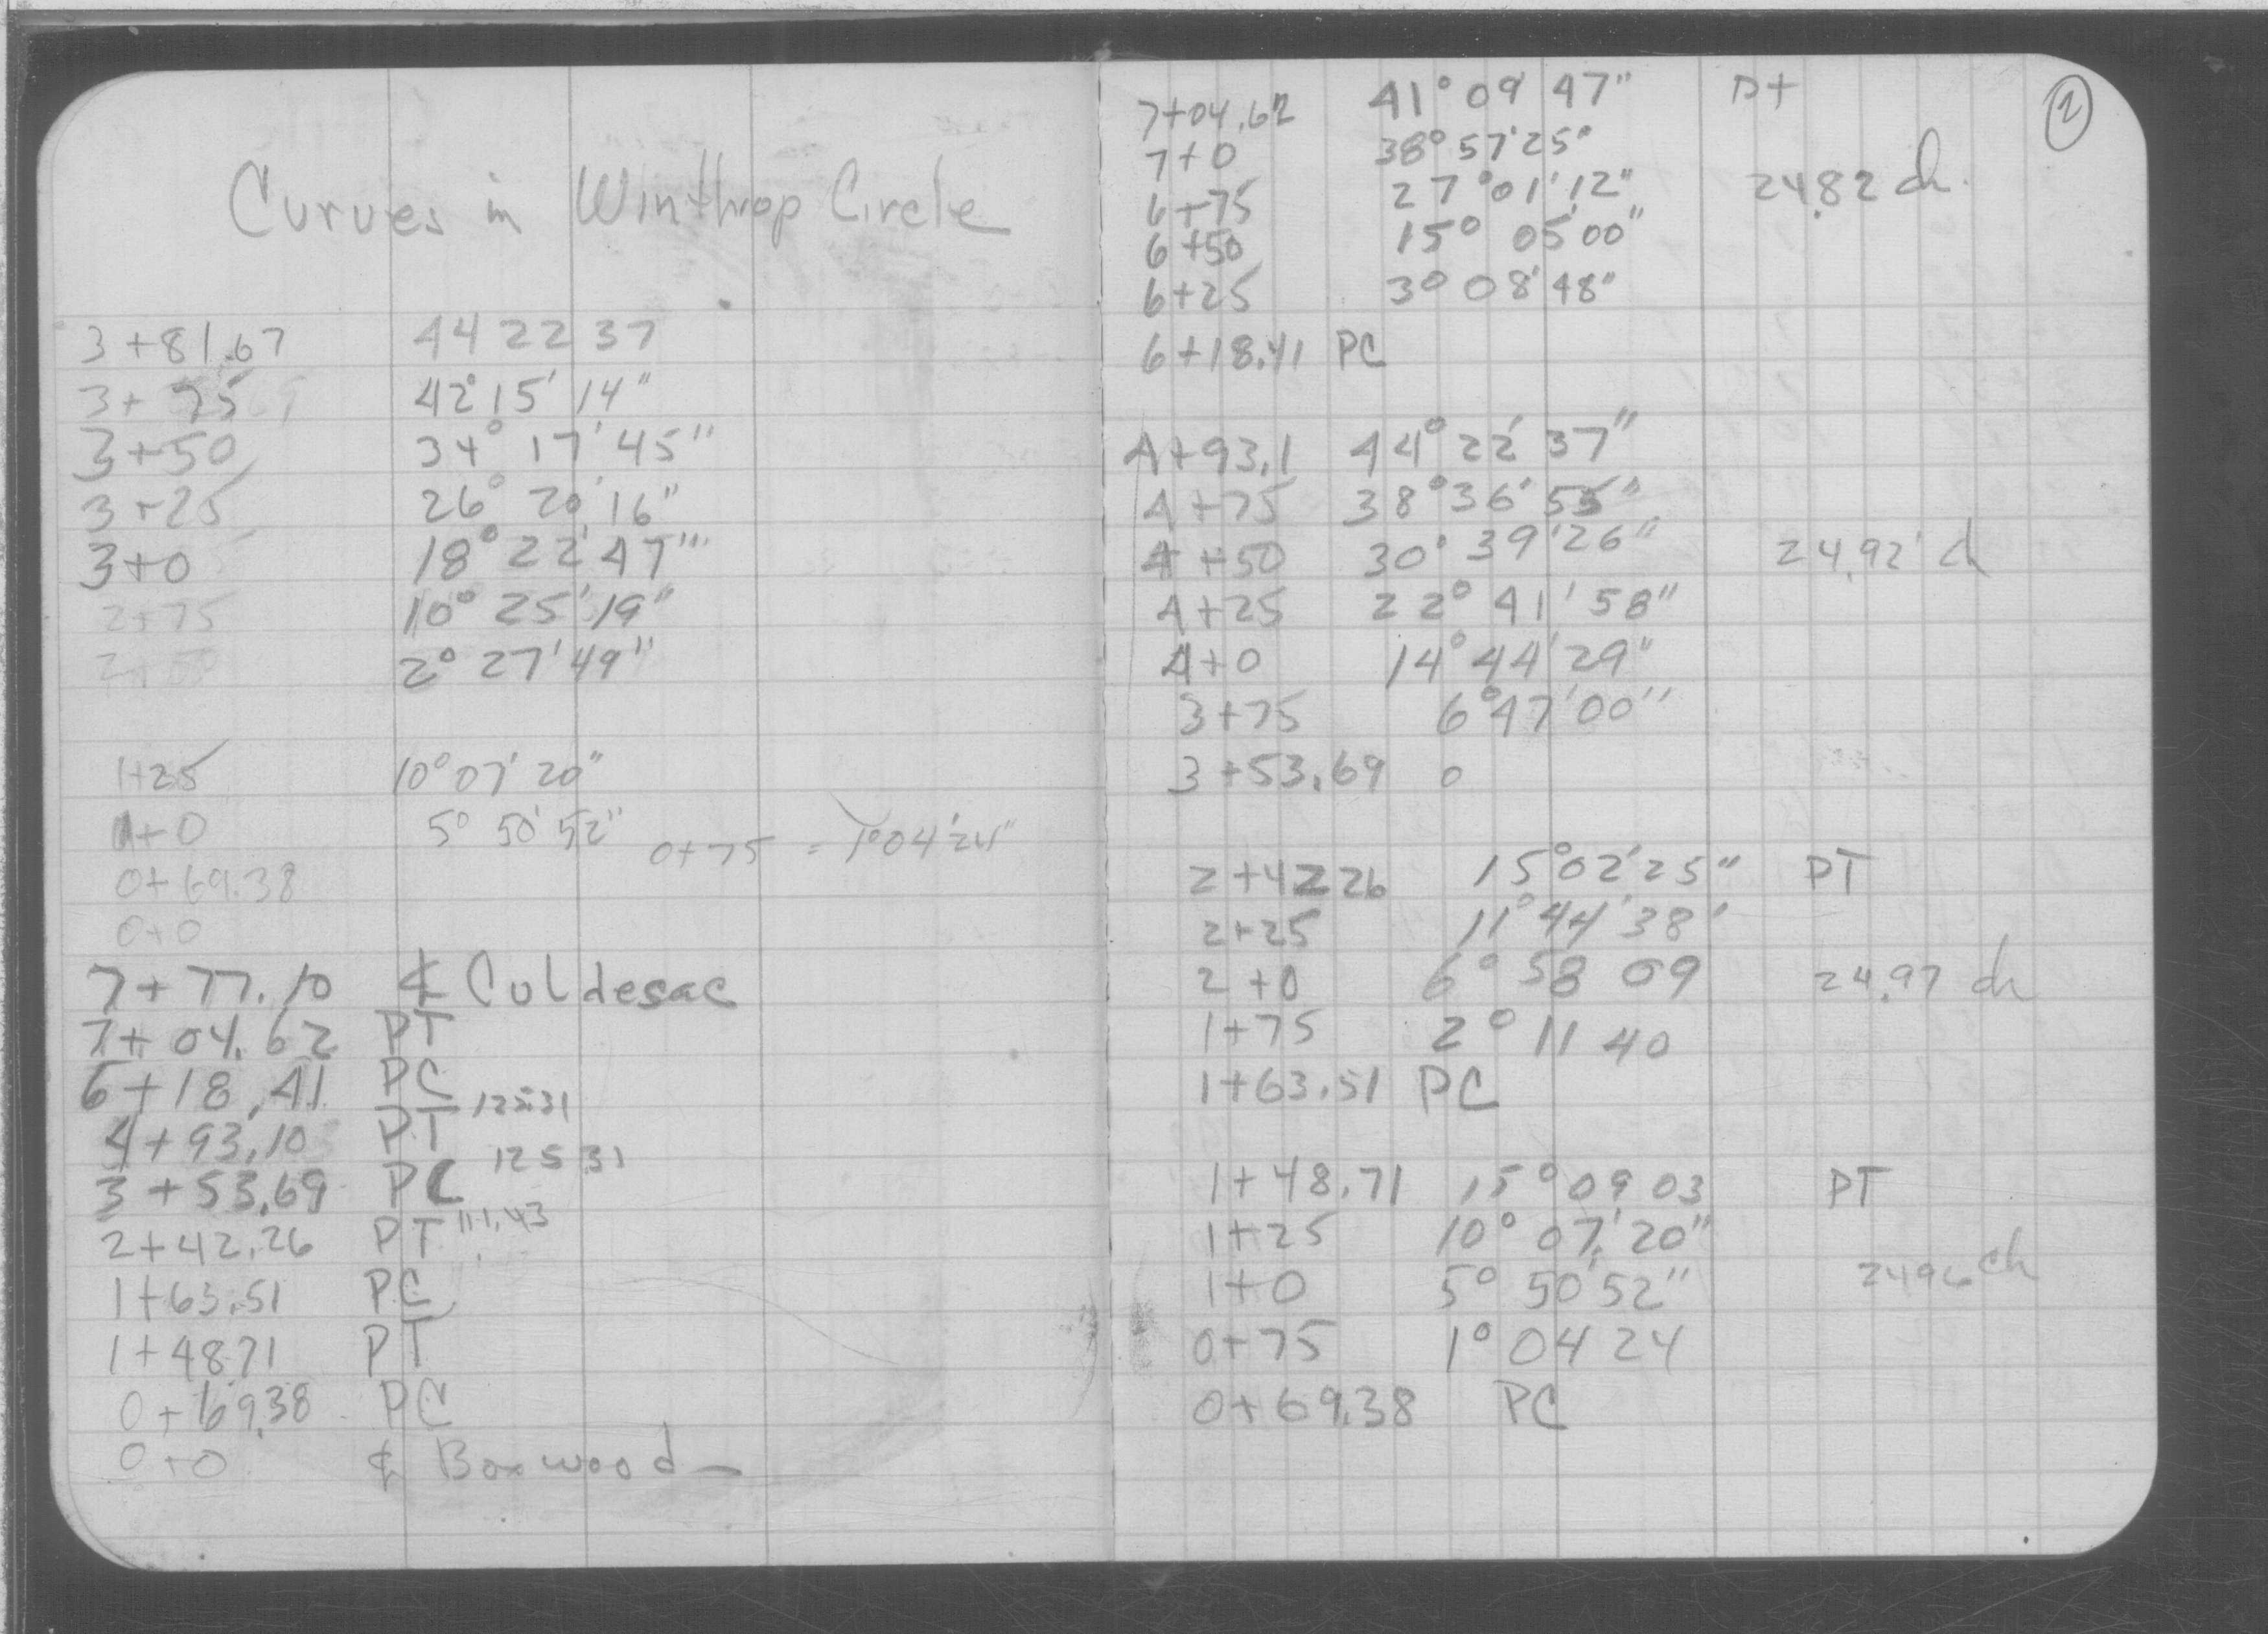 Curves in Winthrop Circle
3+81.67 44 22 37
3+75 42° 15' 14"
3+50 34° 17' 45"
3+25 26° 20' 16"
3+0 18° 22' 47"
2+75 10° 25' 19"
2+50 2° 27' 49"
1+25 10° 07' 20"
1+0 5° 50' 52" 0+75 = 1°04'24"
0+69.38
0+0
7+77.10 ℄ Culdesac
7+04.62 PT
6+18.41 PC
4+93.10 PT 125.31
3+53.69 PC 125 31
2+42.26 PT 111.43
1+63.51 PC
1+48.71 PT
0+69.38 PC
0+0 ℄ Boxwood
2
7+04.62 41° 09' 47" Pt
7+0 38° 57' 25"
6+75 27° 01' 12" 24.82 ch.
6+50 15° 05' 00"
6+25 3° 08' 48"
6+18.41 PC
4+93.1 44° 22' 37"
4+75 38° 36' 55"
4+50 30° 39' 26" 24.92' ch
4+25 22° 41' 58"
4+0 14° 44' 29"
3+75 6° 47' 00"
3+53.69 0
2+42 26 15° 02' 25" PT
2+25 11° 44' 38'
2+0 6° 58 09 24.97 ch
1+75 2° 11 40
1+63.51 PC
1+48.71 15° 09 03 PT
1+25 10° 07' 20"
1+0 5° 50' 52" 24.96 ch
0+75 1° 04 24
0+69.38 PC